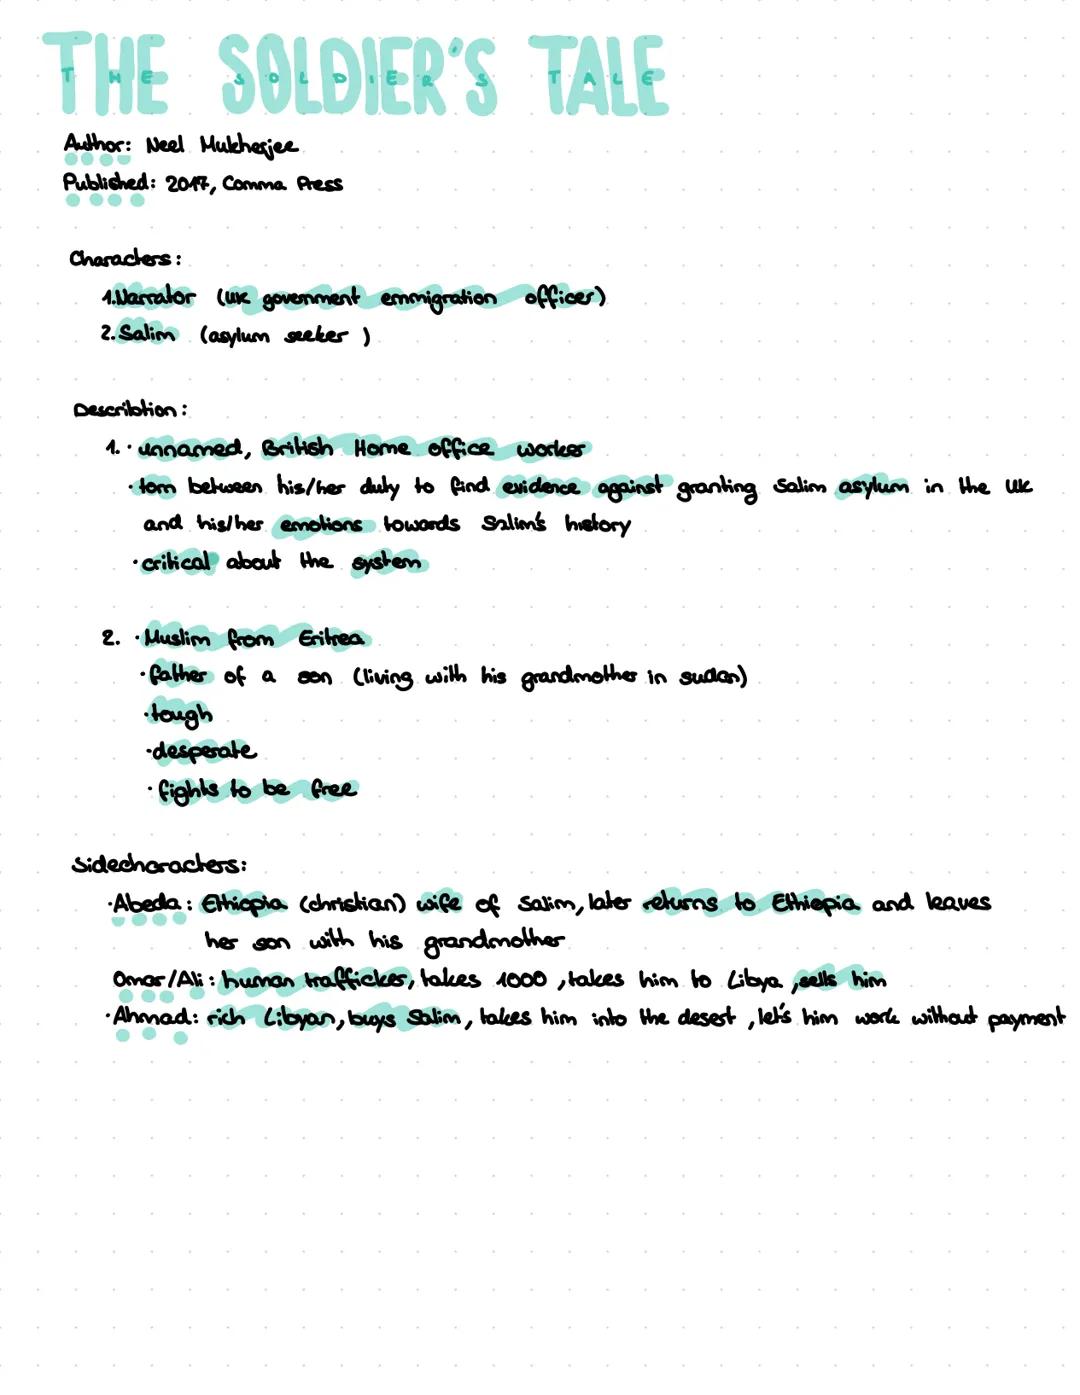 THE SOLDIER'S TALE
THE SOLDIER'S TALE
Author: Neel Mukherjee
Published: 2017, Comma Press
Characters:
1. Narrator (UK government emmigration officer)
2. Salim (asylum seeker )
Describtion:
1. · unnamed, British Home office worker
· torn between his/her duty to find evidence against granting Salim asylum in the UK
and his/her emotions towards Salim's history
· critical about the system
2. · Muslim from Eritrea
· father of a son (living with his grandmother in sudan)
· tough
· desperate
· fights to be free
Sidecharacters:
· Abeda: Ethiopia (christian) wife of Salim, later returns to Ethiopia and leaves
her son with his grandmother
Omar/Ali: human trafficker, takes 1000, takes him to Libya, sells him
· Ahmad: rich Libyan, buys Salim, takes him into the desert, let's him work without payment